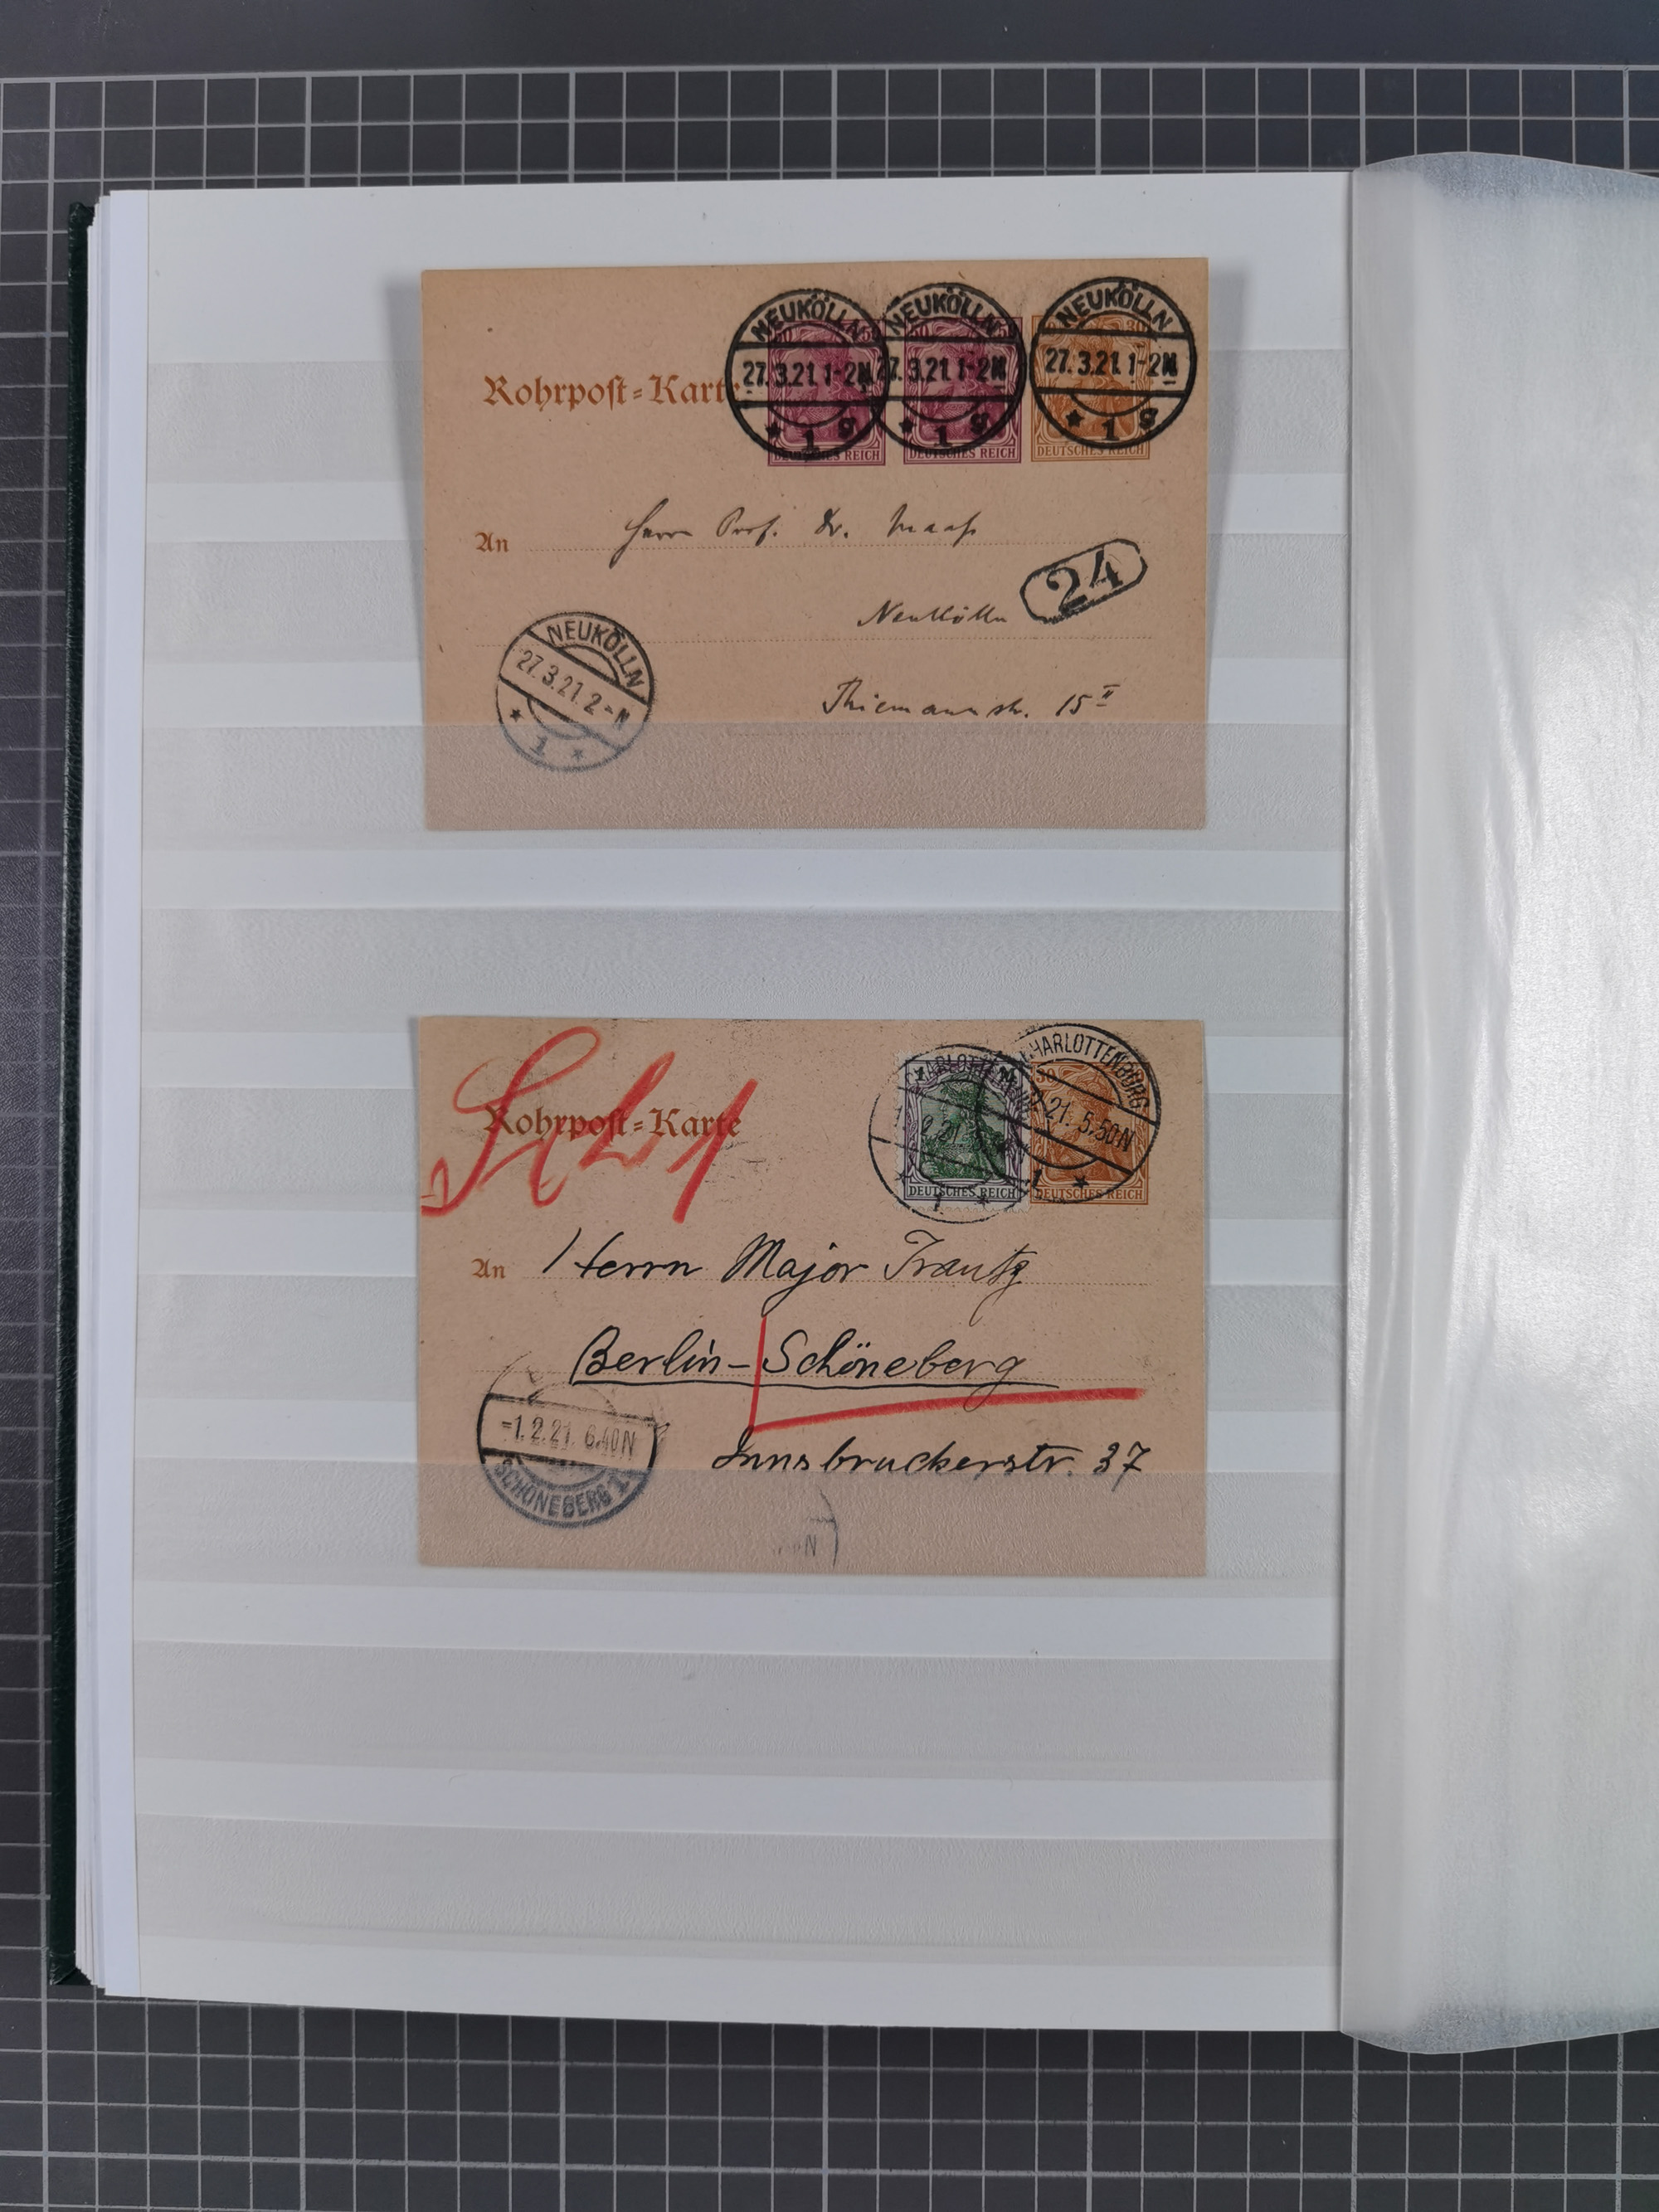 NEUKÖLLN NEUKÖLLN NEUKÖLLN
50 50 30
27.3.21.1-2N 27.3.21.1-2N 27.3.21.1-2N
* 1 g * 1 g * 1 g
DEUTSCHES REICH DEUTSCHES REICH DEUTSCHES REICH
Rohrpost-Karte
An Herrn Prof. Dr. Maaß
24
Neukölln
Thiemannstr. 15 II
NEUKÖLLN
27.3.21.2-N
* 1 *
CHARLOTTENBURG CHARLOTTENBURG
1 M 30
21. 5.50N
1 * 1 *
DEUTSCHES REICH DEUTSCHES REICH
Rohrpost-Karte
An Herrn Major Trautz
Berlin-Schöneberg
Innsbruckerstr. 37
-1.2.21. 6.40N
SCHÖNEBERG 1
N